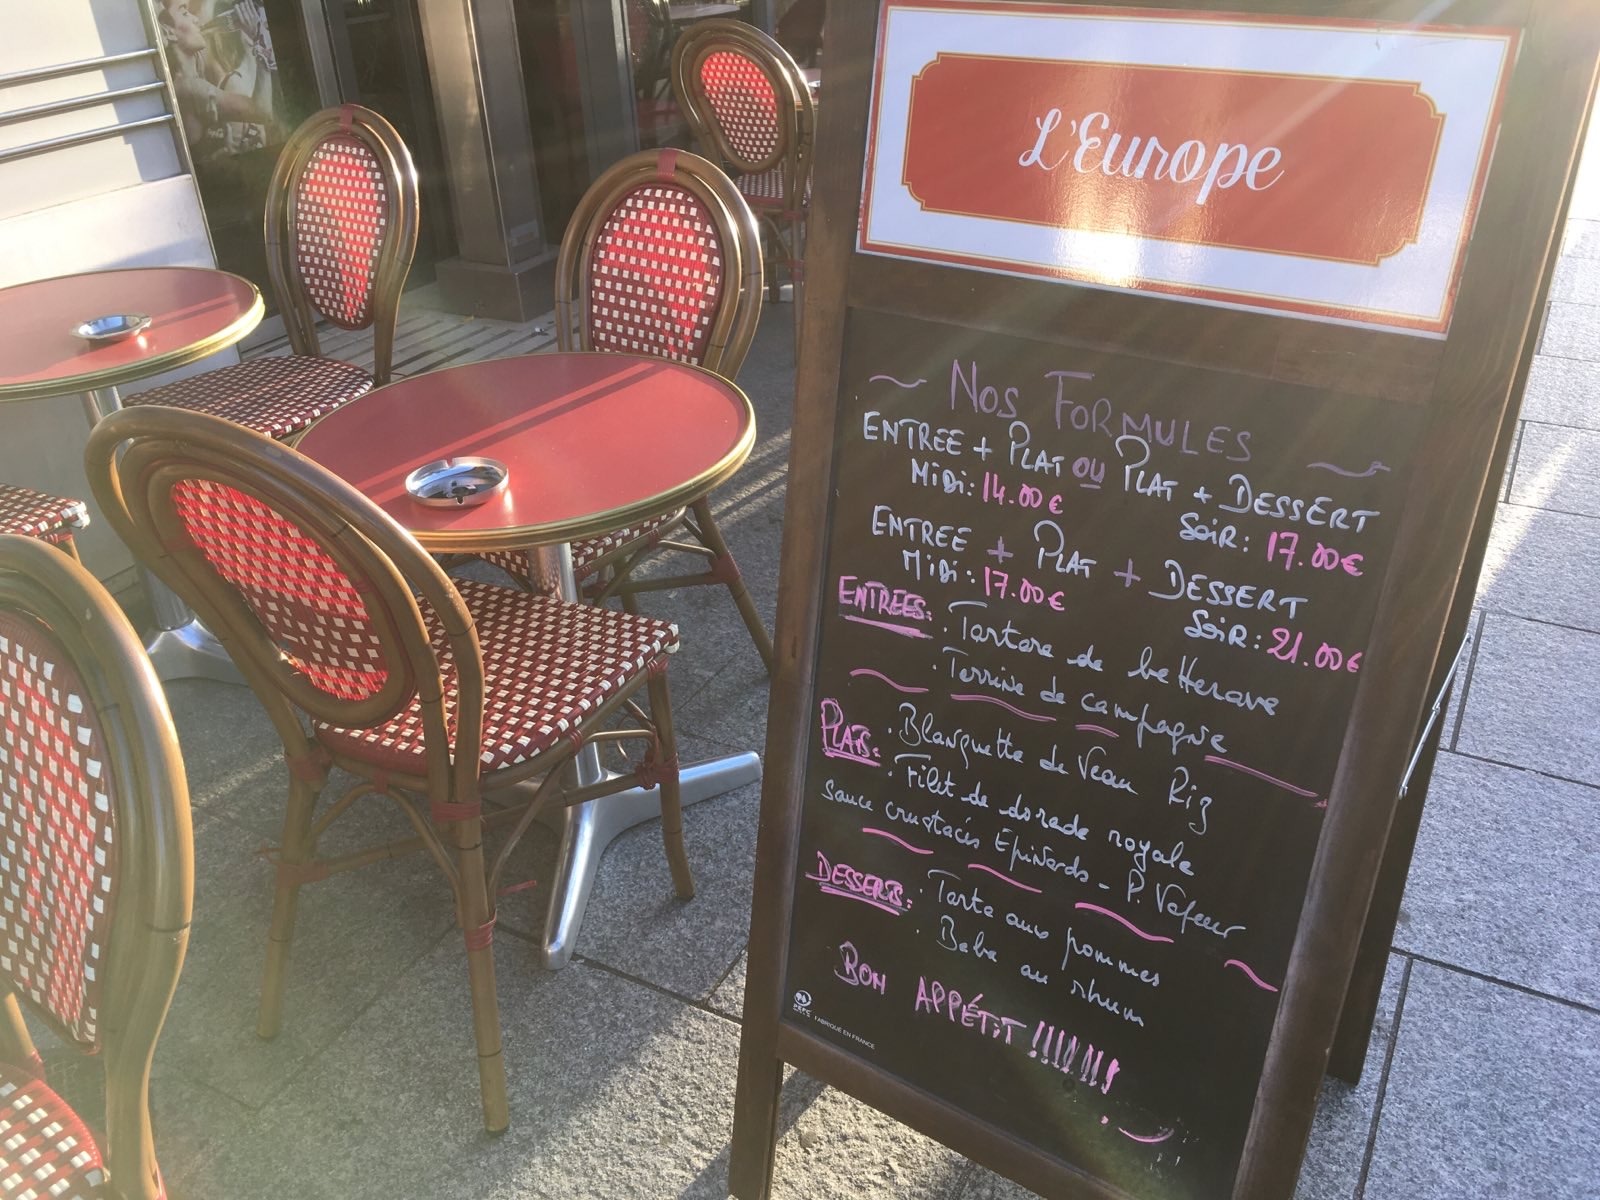 L'Europe
Nos FORMULES
ENTREE + PLAT OU PLAT + DESSERT
MiDi: 14.00€ SoiR: 17.00€
ENTREE + PLAT + DESSERT
MiDi: 17.00€ SoiR: 21.00€
ENTREES: . Tartare de betterave
. Terrine de campagne
PLATS: . Blanquette de Veau Riz
. Filet de dorade royale
Sauce crustacés Epinards - P. Vapeur
DESSERTS: . Tarte aux pommes
. Baba au rhum
BON APPÉTiT !!!!!!!
PEFC FABRIQUÉ EN FRANCE